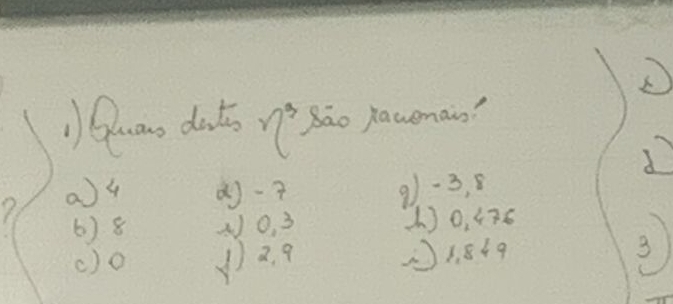 1) Quais destes nºs são racionais?
a) 4 d) -7 g) -3,8
b) 8 e) 0,3 h) 0,476
c) 0 f) 2,9 i) 1,849
3)